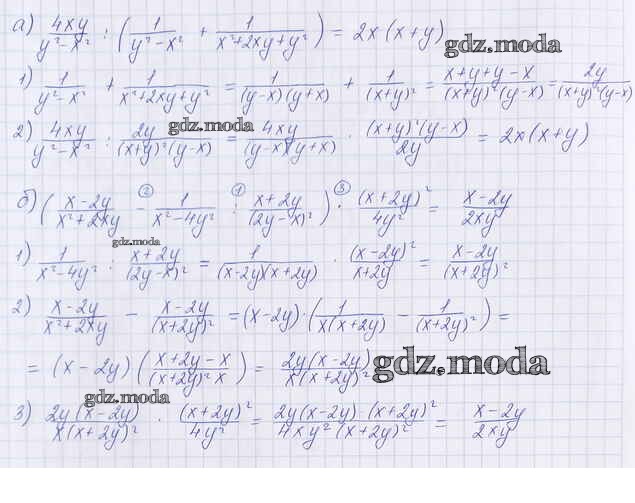 а) 4xy/(y²-x²) : (1/(y²-x²) + 1/(x²+2xy+y²)) = 2x(x+y)
gdz.moda
1) 1/(y²-x²) + 1/(x²+2xy+y²) = 1/((y-x)(y+x)) + 1/(x+y)² = (x+y+y-x)/((x+y)²(y-x)) = 2y/((x+y)²(y-x))
gdz.moda
2) 4xy/(y²-x²) : 2y/((x+y)²(y-x)) = 4xy/((y-x)(y+x)) · ((x+y)²(y-x))/2y = 2x(x+y)
б) ((x-2y)/(x²+2xy) -② 1/(x²-4y²) :① (x+2y)/(2y-x)²) ·③ (x+2y)²/4y² = (x-2y)/2xy
gdz.moda
1) 1/(x²-4y²) : (x+2y)/(2y-x)² = 1/((x-2y)(x+2y)) · (x-2y)²/(x+2y) = (x-2y)/(x+2y)²
2) (x-2y)/(x²+2xy) - (x-2y)/(x+2y)² = (x-2y)·(1/(x(x+2y)) - 1/(x+2y)²) =
= (x-2y)((x+2y-x)/((x+2y)²x)) = 2y(x-2y)/(x(x+2y)²)
gdz.moda
gdz.moda
3) 2y(x-2y)/(x(x+2y)²) · (x+2y)²/4y² = (2y(x-2y)·(x+2y)²)/(4xy²(x+2y)²) = (x-2y)/2xy